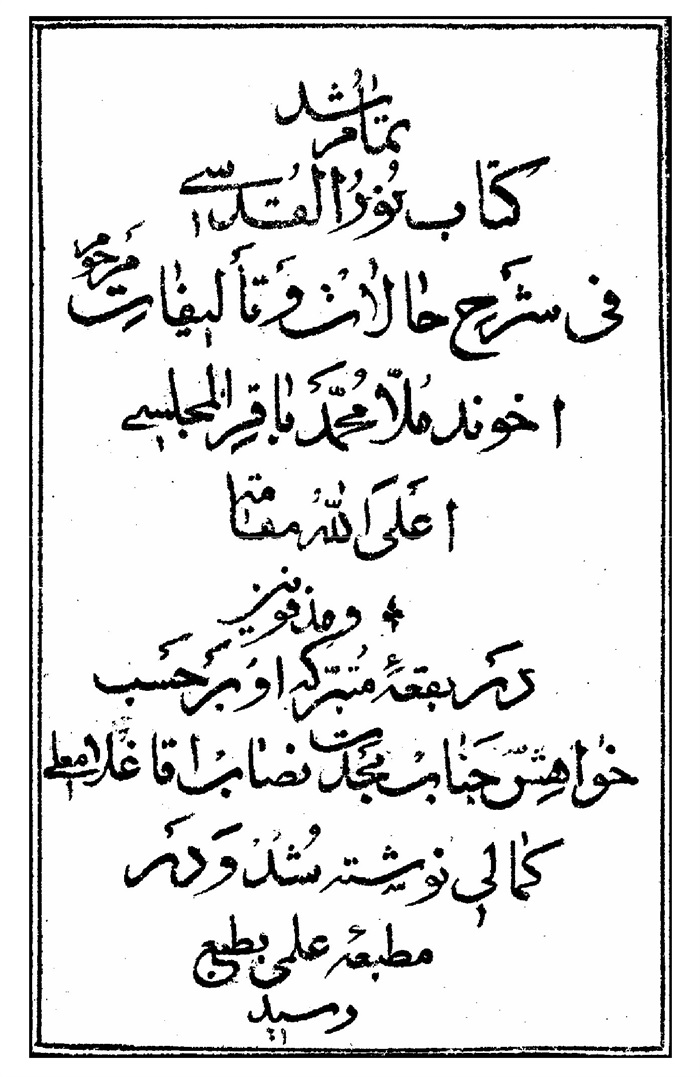 تمام شد
کتاب نور القدسی
فی شرح حالات و تألیفات مرحوم
اخوند ملا محمد باقر المجلسی
اعلی الله مقامه
و مدفونین
در بقعهٔ متبرکه او بر حسب
خواهش جناب مجدت نصاب اقا غلامعلی
کمالی نوشته شد و در
مطبعه علمی بطبع
رسید